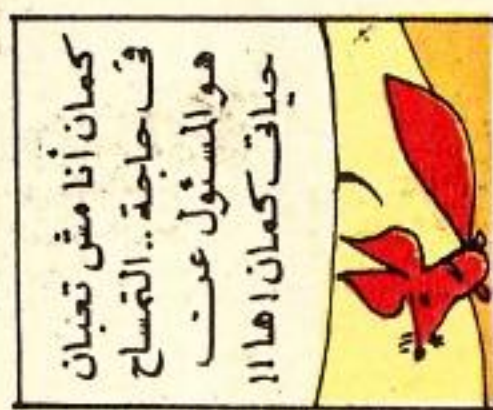 كمان أنا مش تعبان
فى حاجة .. التمساح
هو المسئول عن
حياتى كمان اها !!